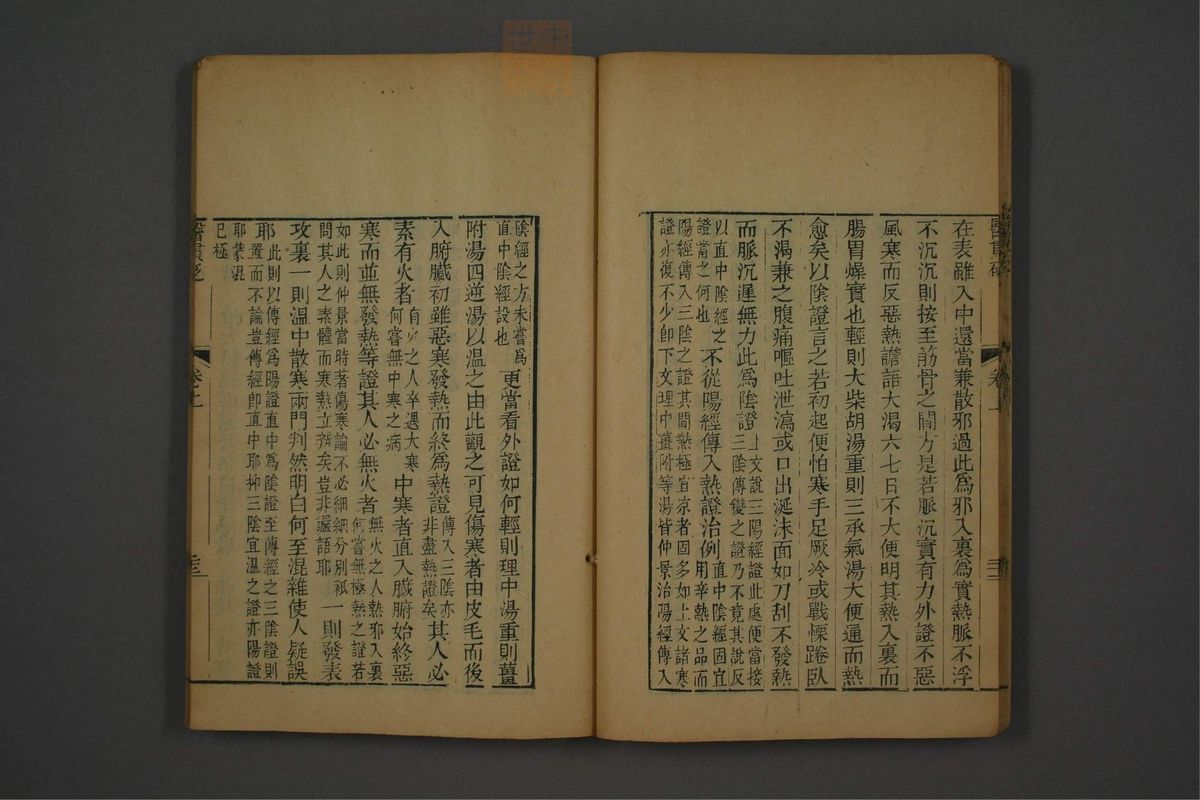 在表雖入中還當兼散邪過此爲邪入裏爲實熱脈不浮
不沉沉則按至筋骨之間方是若脈沉實有力外證不惡
風寒而反惡熱譫語大渴六七日不大便明其熱入裏而
腸胃燥實也輕則大柴胡湯重則三承氣湯大便通而熱
愈矣以陰證言之若初起便怕寒手足厥冷或戰慄踡臥
不渴兼之腹痛嘔吐泄瀉或口出涎沫面如刀刮不發熱
而脈沉遲無力此爲陰證
上文說三陽經證此處便當接
三陰傳變之證乃不竟其說反
以直中陰經之
證當之何也
不從陽經傳入熱證治例
直中陰經固宜
用辛熱之品而
陽經傳入三陰之證其間熱極宜凉者固多如上文諸寒
證亦復不少卽下文理中薑附等湯皆仲景治陽經傳入
醫貫砭
卷上
陰經之方未嘗爲
直中陰經設也
更當看外證如何輕則理中湯重則薑
附湯四逆湯以溫之由此觀之可見傷寒者由皮毛而後
入腑臟初雖惡寒發熱而終爲熱證
傳入三陰亦
非盡熱證矣
其人必
素有火者
有火之人卒遇大寒
何嘗無中寒之病
中寒者直入臟腑始終惡
寒而並無發熱等證其人必無火者
無火之人熱邪入裏
何嘗無極熱之證若
如此則仲景當時著傷寒論不必細細分別祇
問其人之素體而寒熱立辨矣豈非讝語耶
一則發表
攻裏一則溫中散寒兩門判然明白何至混雜使人疑誤
耶
此則以傳經爲陽證直中爲陰證至傳經之三陰證則
置而不論豈傳經卽直中耶抑三陰宜溫之證亦陽證
耶蒙混
已極
醫貫砭
卷上